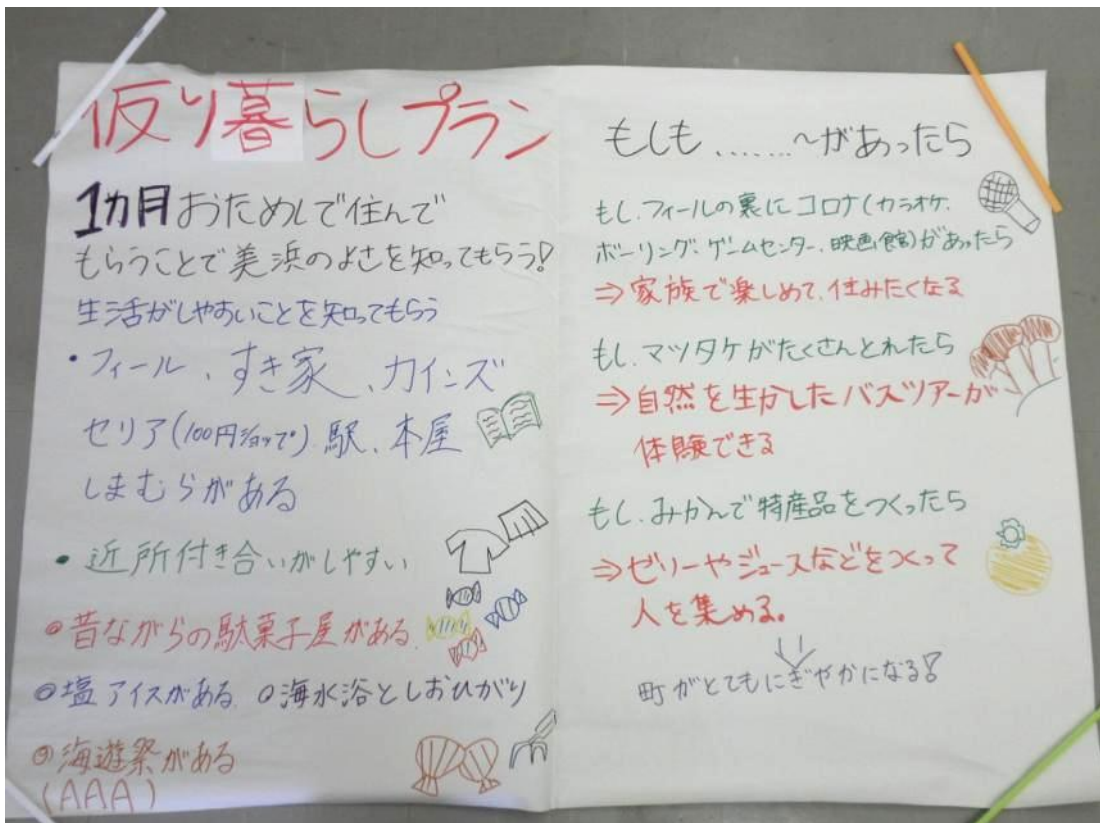 仮り暮らしプラン
1カ月おためしで住んで
もらうことで美浜のよさを知ってもらう!
生活がしやすいことを知ってもらう
・フィール、すき家、カインズ
セリア(100円ショップ)、駅、本屋
しまむらがある
・近所付き合いがしやすい
◎昔ながらの駄菓子屋がある。
◎塩アイスがある。◎海水浴としおひがり
◎海遊祭がある
(AAA)
もしも……~があったら
もし、フィールの裏にコロナ(カラオケ、
ボーリング、ゲームセンター、映画館)があったら
⇒家族で楽しめて、住みたくなる
もし、マツタケがたくさんとれたら
⇒自然を生かしたバスツアーが
体験できる
もし、みかんで特産品をつくったら
⇒ゼリーやジュースなどをつくって
人を集める。
町がとてもにぎやかになる!